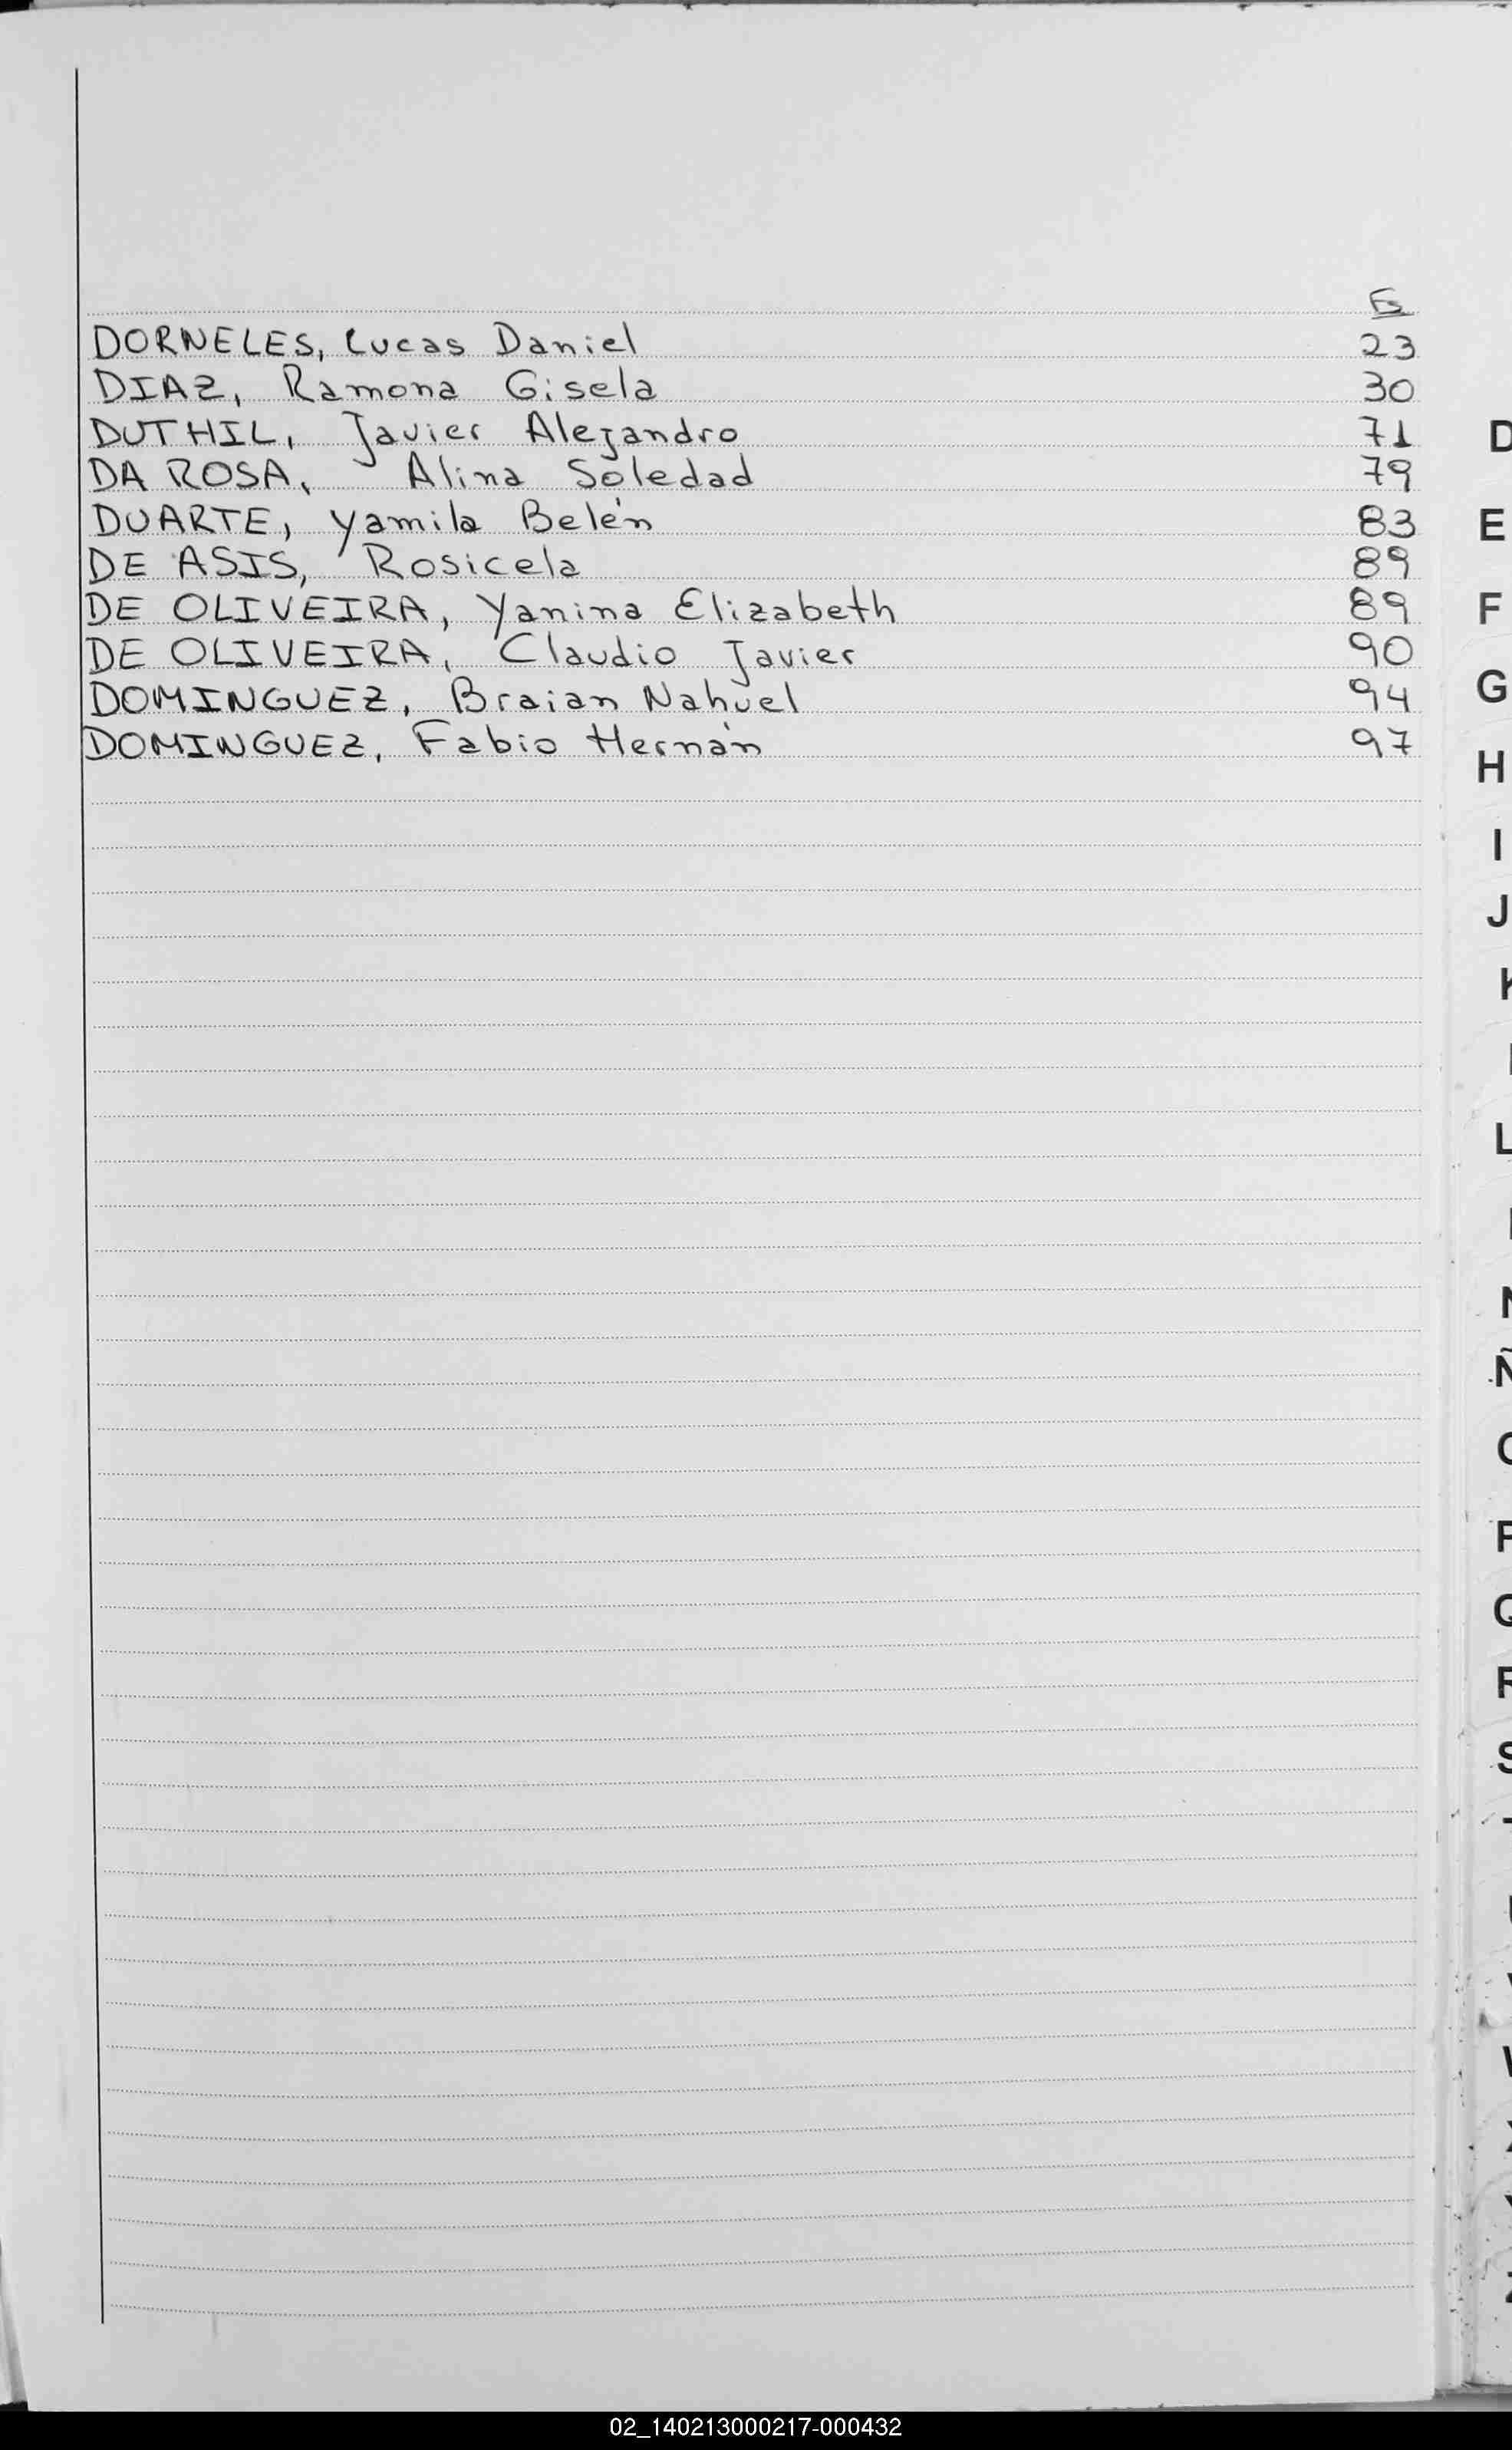 Fs
DORNELES, Lucas Daniel 23
DIAZ, Ramona Gisela 30
DUTHIL, Javier Alejandro 71
DA ROSA, Alina Soledad 79
DUARTE, Yamila Belén 83
DE ASIS, Rosicela 89
DE OLIVEIRA, Yanina Elizabeth 89
DE OLIVEIRA, Claudio Javier 90
DOMINGUEZ, Braian Nahuel 94
DOMINGUEZ, Fabio Hernán 97
D
E
F
G
H
I
J
K
L
N
Ñ
Q
R
S
02_140213000217-000432